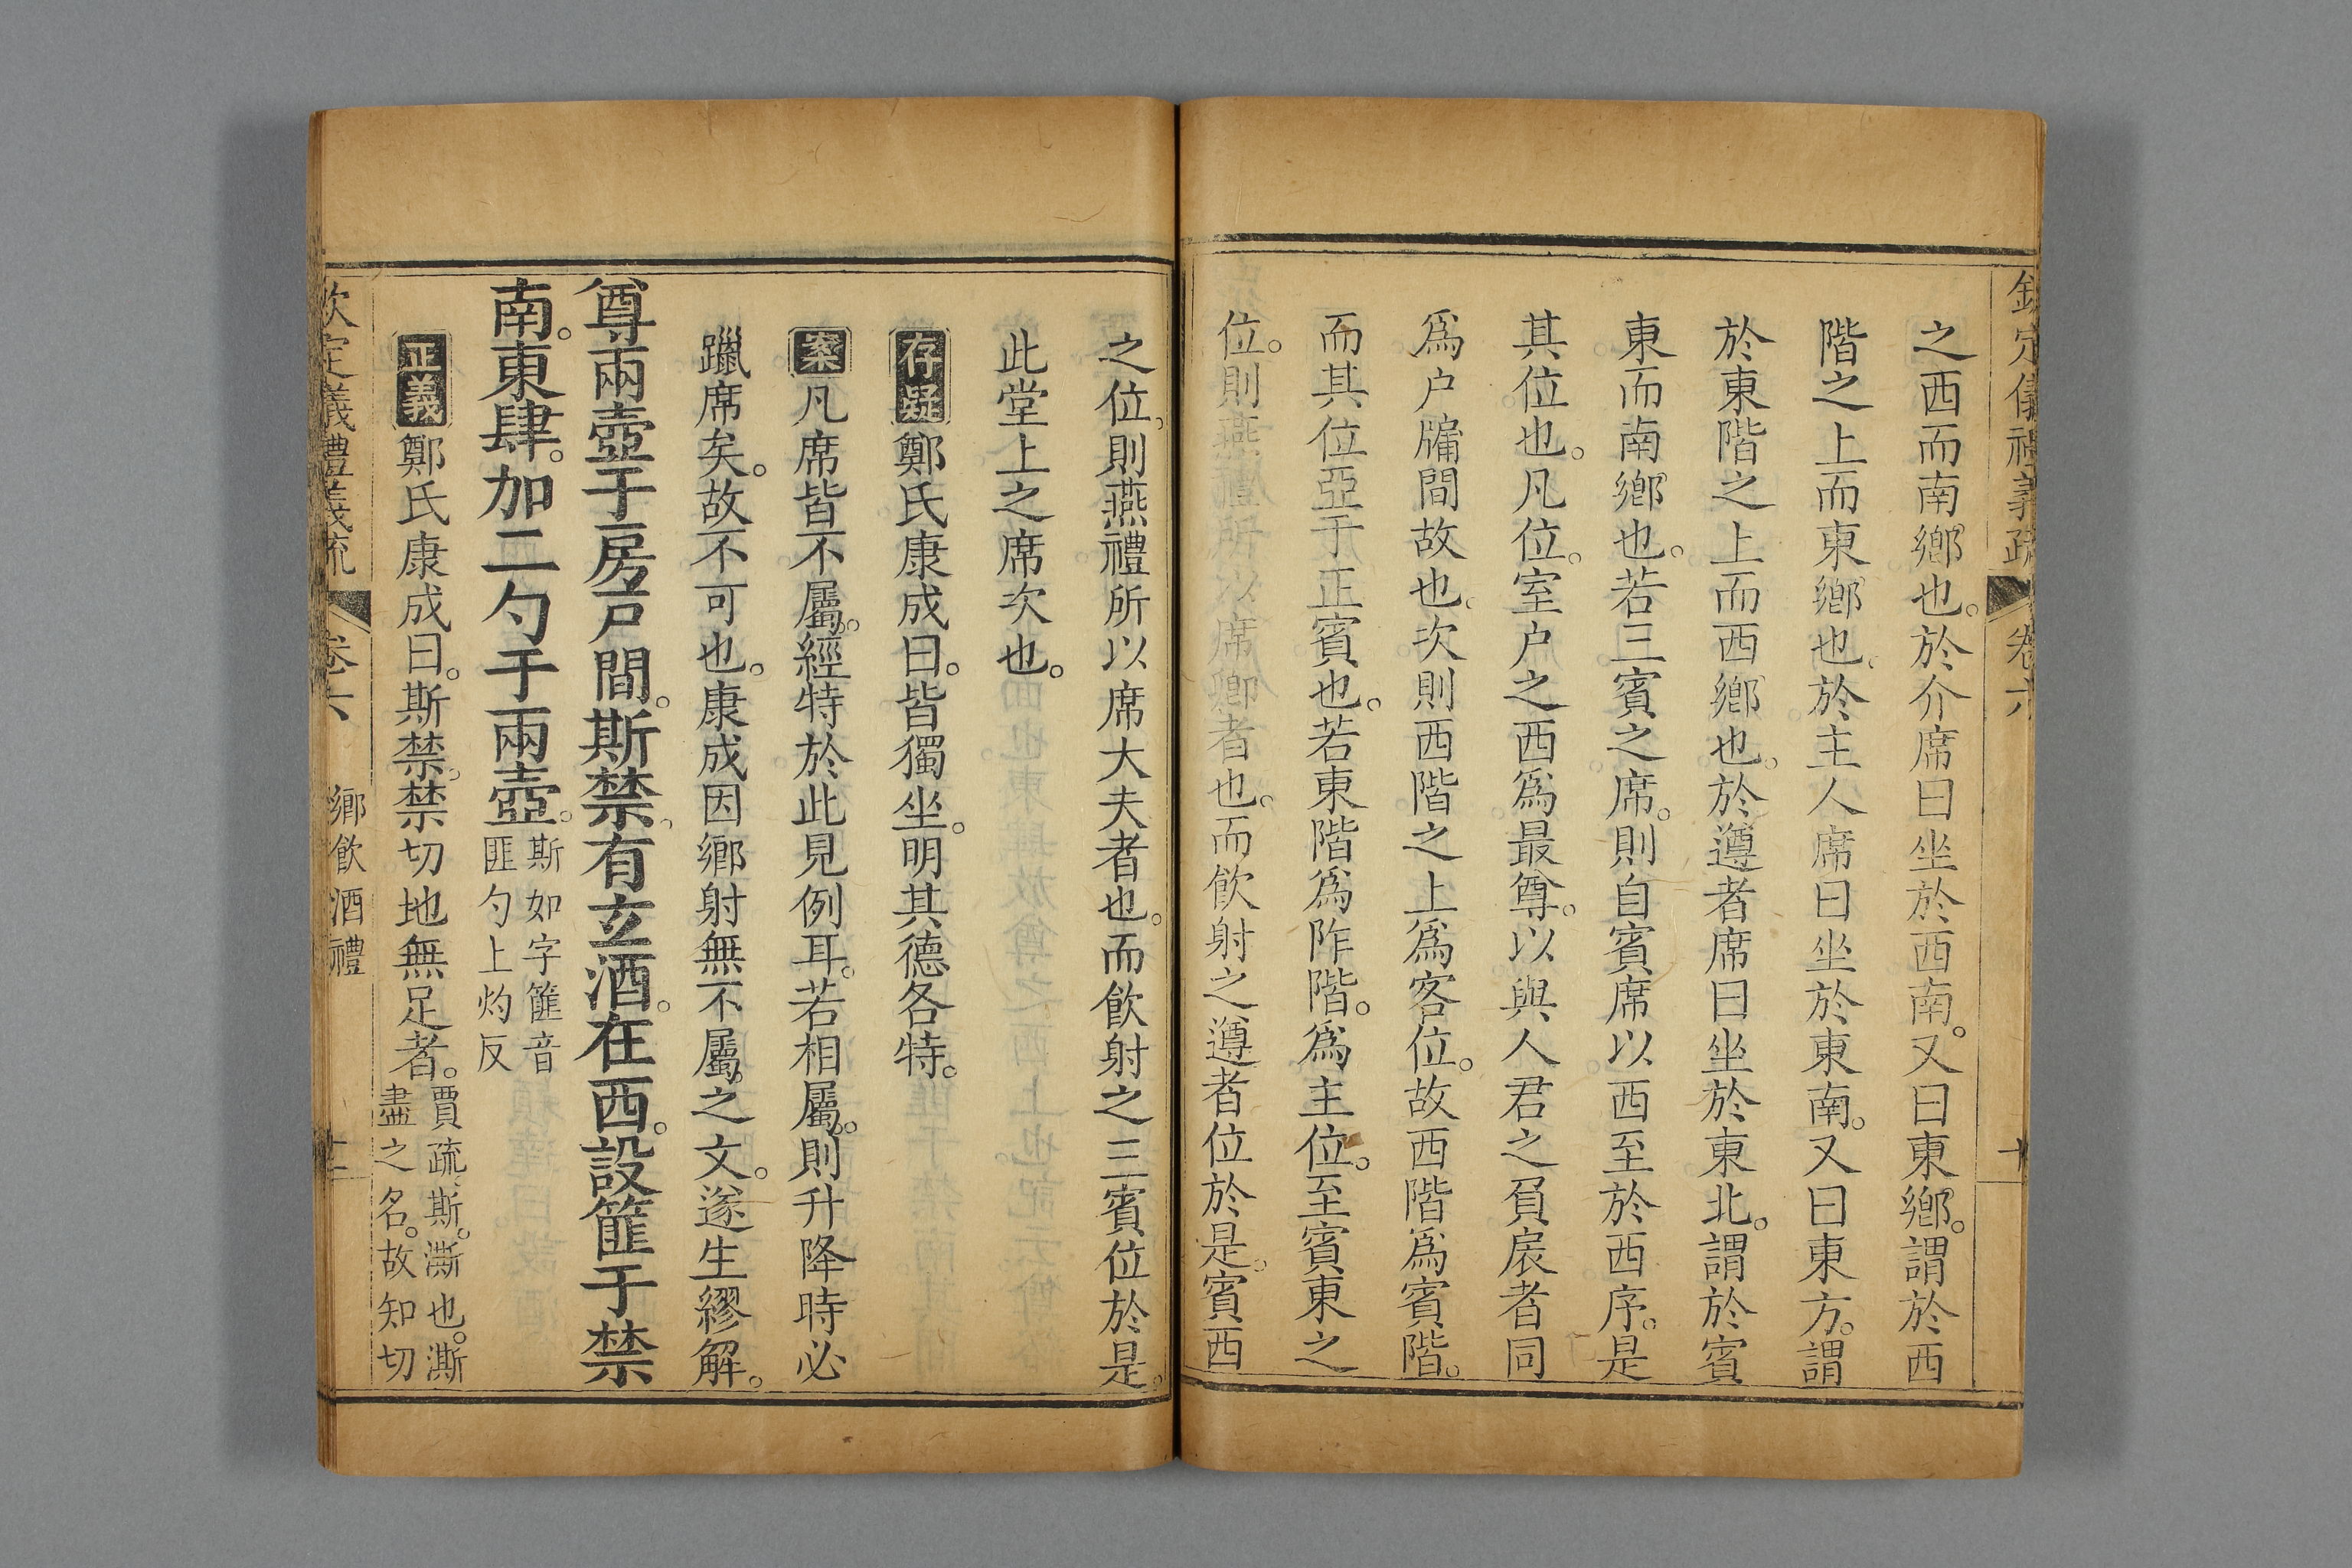 欽定儀禮義疏 卷六
之西而南鄉也。於介席曰坐於西南。又曰東鄉。謂於西
階之上而東鄉也。於主人席曰坐於東南。又曰東方。謂
於東階之上而西鄉也。於遵者席曰坐於東北。謂於賓
東而南鄉也。若三賓之席。則自賓席以西至於西序。是
其位也。凡位。室户之西爲最尊。以與人君之負扆者同
爲户牖間故也。次則西階之上爲客位。故西階爲賓階。
而其位亞于正賓也。若東階爲阼階。爲主位。至賓東之
位。則燕禮所以席卿者也。而飲射之遵者位於是。賓西
之位。則燕禮所以席大夫者也。而飲射之三賓位於是。
此堂上之席次也。
存疑 鄭氏康成曰。皆獨坐。明其德各特。
案 凡席皆不屬。經特於此見例耳。若相屬。則升降時必
躐席矣。故不可也。康成因鄉射無不屬之文。遂生繆解。
尊兩壺于房户間。斯禁。有玄酒。在西。設篚于禁
南。東肆。加二勺于兩壺。斯如字篚音
匪勺上灼反
正義 鄭氏康成曰。斯禁。禁切地無足者。賈疏。斯。澌也。澌
盡之名。故知切
欽定儀禮義疏 卷六 鄉飲酒禮